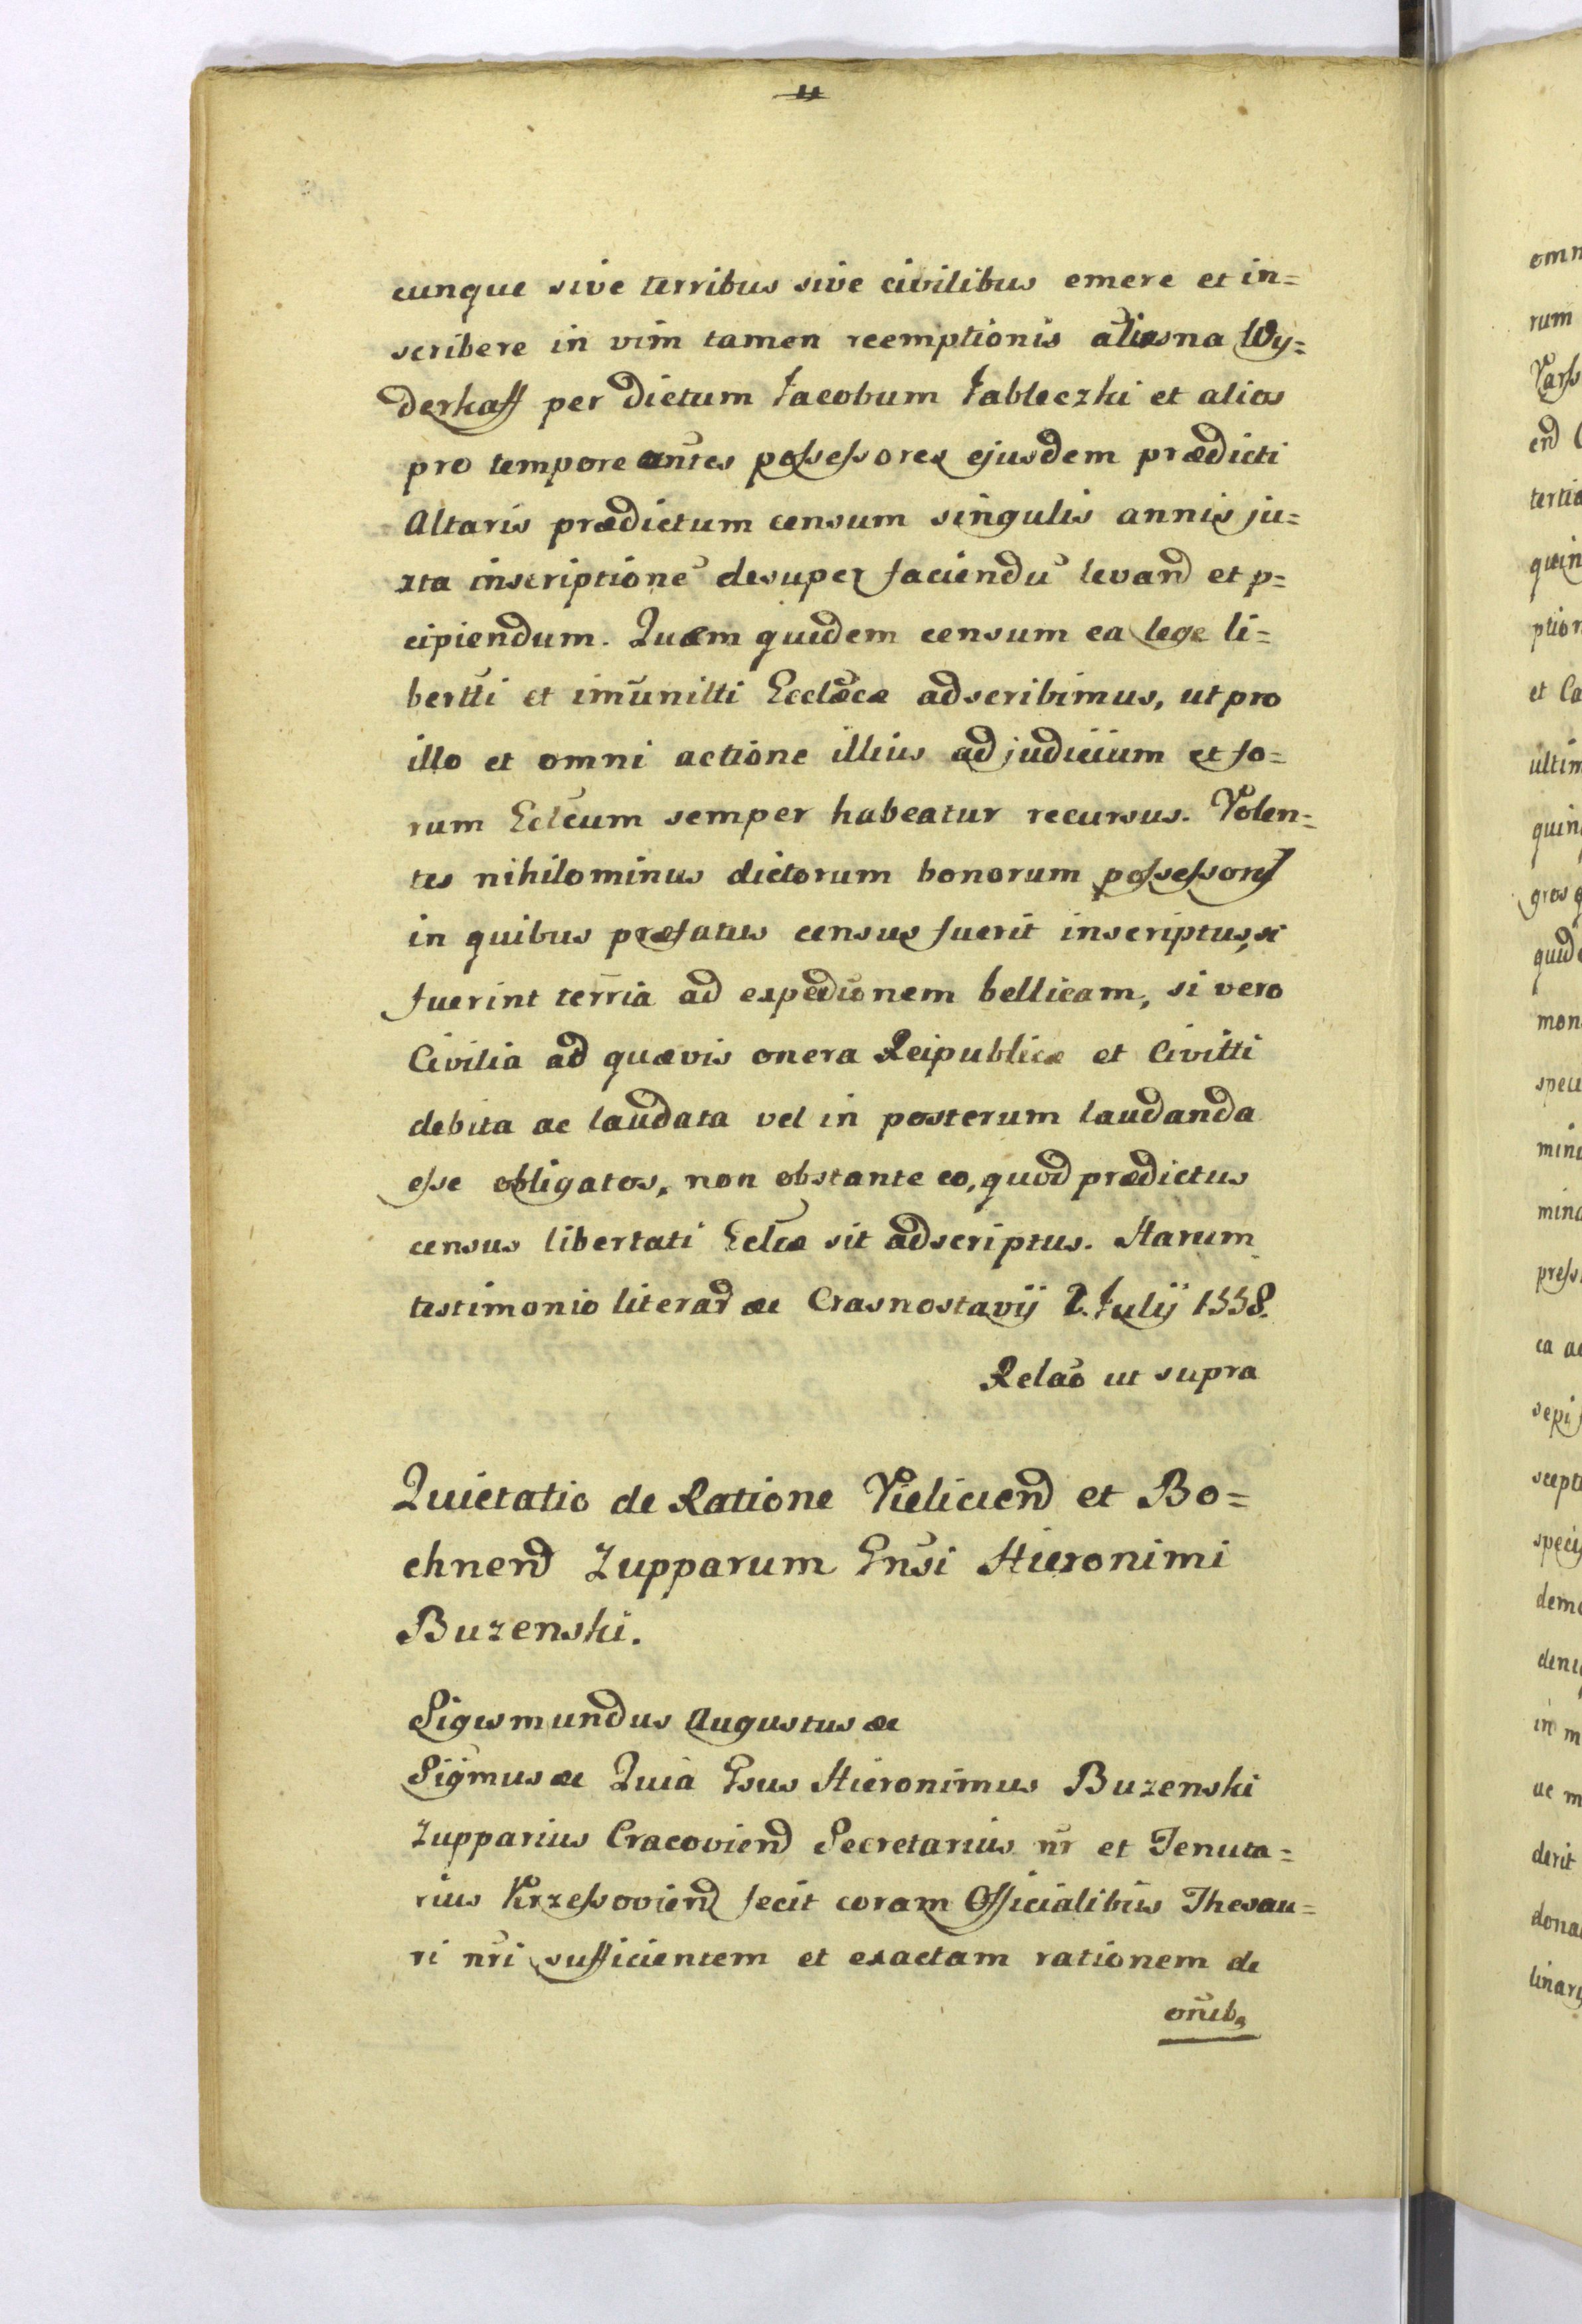 cunque sive terribus sive civilibus emere et in=
scribere in vim tamen reemptionis alias na Wy=
derkaff per dictum Jacobum Jableczki et alios
pro tempore antes possessores ejusdem prædicti
Altaris prædictum censum singulis annis ju=
xta inscriptionē desuper faciendū levand et p=
cipiendum. Quæm quidem censum ea lege li=
bertti et imūnitti Ecclæcæ adscribimus, ut pro
illo et omni actione illius ad judicium et fo=
rum Eclcum semper habeatur recursus. Volen=
tes nihilominus dictorum bonorum possessores
in quibus præfatus census fuerit inscriptus, si
fuerint terria ad expedionem bellicam, si vero
Civilia ad quævis onera Reipublicæ et Civitti
debita ac laudata vel in posterum laudanda
esse obligatos, non obstante eo, quod prædictus
census libertati Eclæ sit adscriptus. Harum
testimonio literar æc Crasnostavij 2. Julij 1558.
Relaō ut supra
Quietatio de Ratione Vieliciend et Bo=
chnend Zupparum Gnsi Hieronimi
Buzenski.
Sigismundus Augustus æc
Sigmus æc Quia Gsus Hieronimus Buzenski
Zupparius Cracoviend Secretarius nr et Tenuta=
rius Krzessoviend fecit coram Officialibus Thesau=
ri nri sufficientem et exactam rationem de
omib,
omn
rum
Vars
end
tertia
quin
ption
et Ca
ultim
quin
gros q
quid
mon
spec
min
mina
press
ea a
sepi
scept
specij
dem
den
in m
ac m
derit
dona
linary